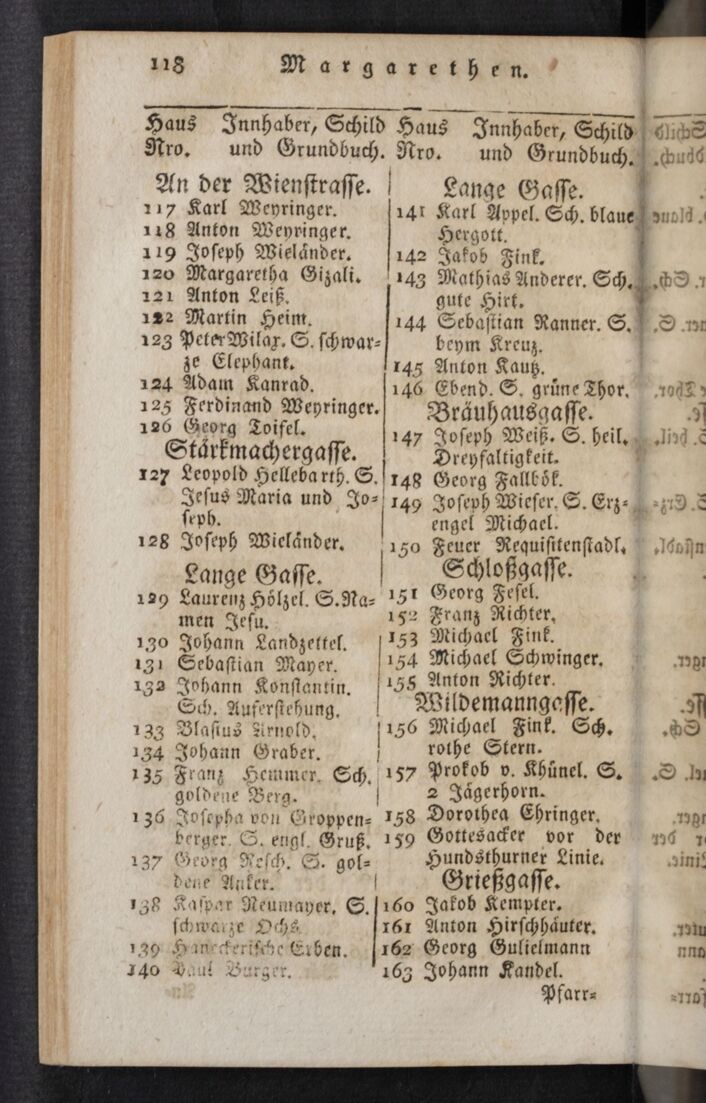 118 Margarethen.
Haus Innhaber, Schild
Nro. und Grundbuch.
An der Wienstrasse.
117 Karl Weyringer.
118 Anton Weyringer.
119 Joseph Wieländer.
120 Margaretha Gizali.
121 Anton Leiß.
122 Martin Heim.
123 Peter Wilax. S. schwar=
ze Elephant.
124 Adam Kanrad.
125 Ferdinand Weyringer.
126 Georg Toifel.
Stärkmachergasse.
127 Leopold Hellebarth. S.
Jesus Maria und Jo=
seph.
128 Joseph Wieländer.
Lange Gasse.
129 Laurenz Hölzel. S. Na=
men Jesu.
130 Johann Landzettel.
131 Sebastian Mayer.
132 Johann Konstantin.
Sch. Auferstehung.
133 Blasius Arnold.
134 Johann Graber.
135 Franz Hemmer. Sch.
goldene Berg.
136 Josepha von Groppen=
berger. S. engl. Gruß.
137 Georg Resch. S. gol=
dene Anker.
138 Kaspar Neumayer. S.
schwarze Ochs.
139 Haneckerische Erben.
140 Paul Burger.
Haus Innhaber, Schild
Nro. und Grundbuch.
Lange Gasse.
141 Karl Appel. Sch. blaue
Hergott.
142 Jakob Fink.
143 Mathias Anderer. Sch.
gute Hirt.
144 Sebastian Ranner. S.
beym Kreuz.
145 Anton Kautz.
146 Ebend. S. grüne Thor.
Bräuhausgasse.
147 Joseph Weiß. S. heil.
Dreyfaltigkeit.
148 Georg Fallbök.
149 Joseph Wieser. S. Erz=
engel Michael.
150 Feuer Requisitenstadl.
Schloßgasse.
151 Georg Fesel.
152 Franz Richter.
153 Michael Fink.
154 Michael Schwinger.
155 Anton Richter.
Wildemanngasse.
156 Michael Fink. Sch.
rothe Stern.
157 Prokob v. Khünel. S.
2 Jägerhorn.
158 Dorothea Ehringer.
159 Gottesacker vor der
Hundsthurner Linie.
Grießgasse.
160 Jakob Kempter.
161 Anton Hirschhäuter.
162 Georg Gulielmann
163 Johann Kandel.
Pfarr=